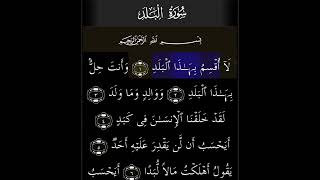 سُورَةُ الْبَلَدِ
بِسْمِ اللَّهِ الرَّحْمَٰنِ الرَّحِيمِ
لَآ أُقْسِمُ بِهَٰذَا ٱلْبَلَدِ ١ وَأَنتَ حِلٌّۢ
بِهَٰذَا ٱلْبَلَدِ ٢ وَوَالِدٍ وَمَا وَلَدَ ٣
لَقَدْ خَلَقْنَا ٱلْإِنسَٰنَ فِى كَبَدٍ ٤
أَيَحْسَبُ أَن لَّن يَقْدِرَ عَلَيْهِ أَحَدٌ ٥
يَقُولُ أَهْلَكْتُ مَالًا لُّبَدًا ٦ أَيَحْسَبُ